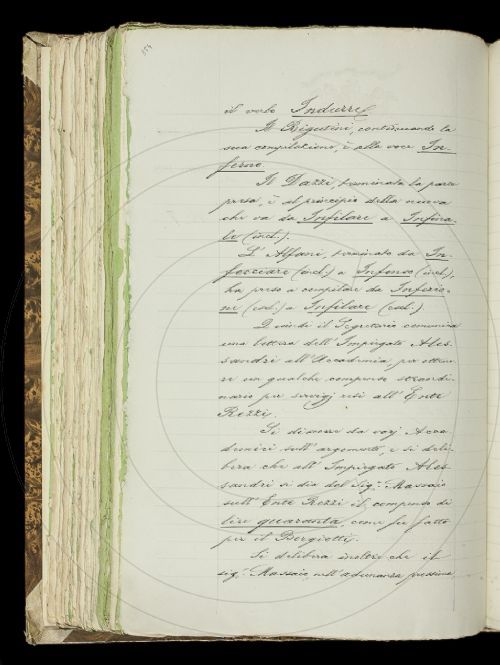 154
il verbo Indurre.
Il Rigutini, continuando la
sua compilazione, è alla voce In-
ferno.
Il Dazzi, terminata la parte
presa, è al principio della nuova
che va da Infilare a Infina-
le (incl.).
L'Alfani, terminato da In-
feciare (incl.) a Infenso (incl.),
ha preso a compilare da Inferio-
ni (escl.) a Infilare (escl.).
Quindi il Segretario comunica
una lettera dell'Impiegato Ales-
sandri all'Accademia, per ottene-
re un qualche compenso straordi-
nario per servigj resi all'Ente
Rezzi.
Si discorre da varj Acca-
demici sull'argomento, e si deli-
bera che all'Impiegato Ales-
sandri si dia dal Sig.r Massaio
sull'Ente Rezzi il compenso di
lire quaranta, come fu fatto
per il Bergiotti.
Si delibera inoltre che il
sig.r Massaio, nell'adunanza prossima,